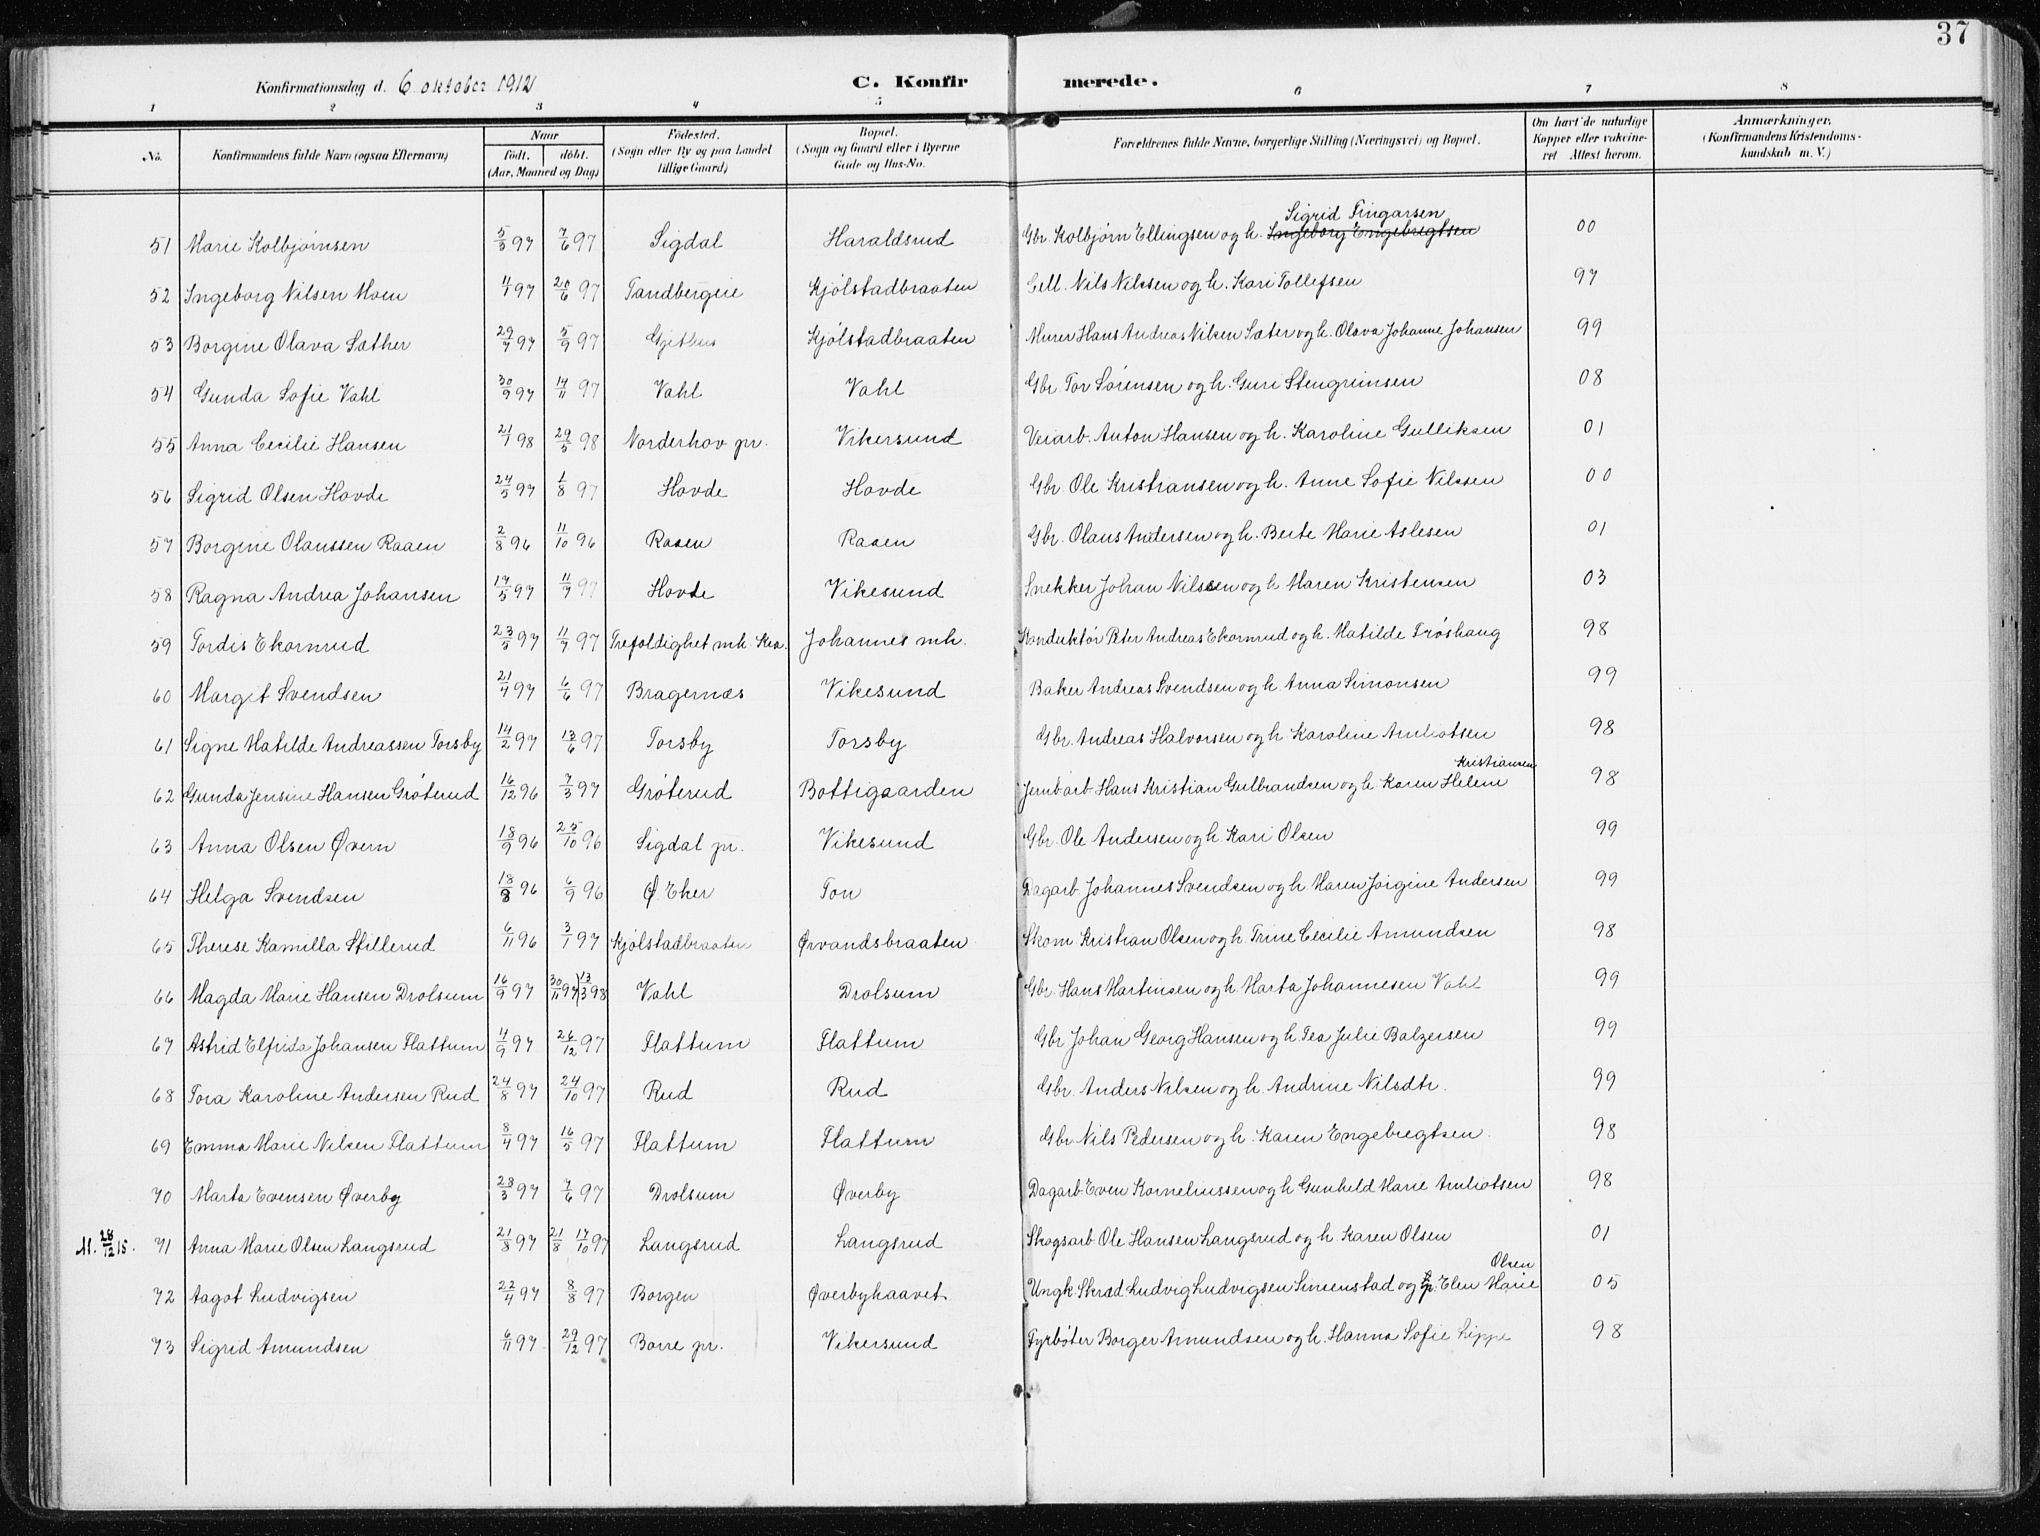 37
Konfirmationsdag d. 6 oktober 1912 C. Konfirmerede.
1 2 3 4 5 6 7 8
No. Konfirmandens fulde Navn (ogsaa Efternavn) Naar født. døbt. (Aar, Maaned og Dag) Fødested. (Sogn eller By og paa Landet tillige Gaard) Bopæl. (Sogn og Gaard eller i Byerne Gade og Hus-No. Forældrenes fulde Navne, borgerlige Stilling (Næringsvei) og Bopæl. Om havt de naturlige Kopper eller vakcineret Attest herom. Anmærkninger. (Konfirmandens Kristendomskundskab m. V.)
Sigrid Fingarsen
51 Marie Kolbjørnsen 5/3 97 7/6 97 Sigdal Haraldsud Gbr. Kolbjørn Ellingsen og h. Ingeborg Engebregtsen 00
52 Ingeborg Nilsen Moen 4/4 97 20/6 97 Tandbergeie Kjølstadbraaten Cell. Nils Nilssen og h. Kari Tollefsen 97
53 Borgine Olava Sæther 29/7 97 5/9 97 Gjethus Kjølstadbraaten Murer Hans Andreas Nilsen Sæter og h. Olava Johanne Johansen 99
54 Gunda Sofie Vahl 30/9 97 14/11 97 Vahl Vahl Gbr. Tor Sørensen og h. Guri Stengrimsen 08
55 Anna Cecilie Hansen 21/1 98 29/5 98 Norderhov pr. Vikersund Veiarb. Anton Hansen og h. Karoline Gulliksen 01
56 Sigrid Olsen Hovde 24/5 97 1/8 97 Hovde Hovde Gbr Ole Kristiansen og h. Anne Sofie Nilssen 00
57 Borgine Olaussen Raaen 2/8 96 11/10 96 Raaen Raaen Gbr. Olaus Andersen og h. Berte Marie Aslesen 01
58 Ragna Andrea Johansen 17/5 97 11/7 97 Hovde Vikesund Snekker Johan Nilssen og h Maren Kristensen 03
59 Tordis Ekornrud 23/5 97 11/7 97 Trefoldighet mh. Kra. Johannes mh. Konduktør Peter Andreas Ekornrud og h. Matilde Frøshaug 98
60 Margit Svendsen 21/4 97 6/6 97 Bragernæs Vikesund Baker Andreas Svendsen og h Anna Simonsen 99
61 Signe Matilde Andreassen Torsby 14/2 97 13/6 97 Torsby Torsby Gbr. Andreas Halvorsen og h Karoline Amliotsen 98
Kristiansen
62 Gunda Jensine Hansen Grøterud 16/12 96 7/3 97 Grøterud Bottigaarden Jernb arb Hans Kristian Gulbrandsen og h Karen Helene 98
63 Anna Olsen Øvern 18/9 96 25/10 96 Sigdal pr. Vikesund Gbr. Ole Andersen og h. Kari Olsen 99
64 Helga Svendsen 18/8 96 6/9 96 Ø Eker Ton Dagarb. Johannes Svendsen og h Maren Jørgine Andersen 99
65 Therese Kamilla Stillerud 6/11 96 3/1 97 Kjølstadbraaten Ørvandsbraaten Skom. Kristian Olsen og h. Trine Cecilie Amundsen 98
66 Magda Marie Hansen Drolsum 16/9 97 30/11 97 13/3 98 Vahl Drolsum Gbr. Hans Martinsen og h. Marta Johannesen Vahl 99
67 Astrid Elfrida Johansen Flattum 11/9 97 26/12 97 Flattum Flattum Gbr Johan Georg Hansen og h Tea Julie Balzersen 99
68 Tora Karoline Andersen Rud 24/8 97 24/10 97 Rud Rud Gbr. Anders Nilsen og h. Andrine Nilsdtr. 99
69 Emma Marie Nilsen Flattum 8/4 97 16/5 97 Flattum Flattum Gbr Nils Pedersen og h. Karen Engebregtsen 98
70 Marta Evensen Øverby 28/3 97 7/6 97 Drolsum Øverby Dagarb Even Korneliussen og h Gunhild Marie Amliotsen 98
M. 28/12 15. 71 Anna Marie Olsen Langsrud 21/8 97 21/8 17/10 97 Langsrud Langsrud Skogsarb Ole Hansen Langsrud og h Karen Olsen 01
Olsen
72 Aagot Ludvigsen 22/4 97 8/8 97 Borgen Øverbyhaavet Ungk. Skræd Ludvig Ludvigsen Simenstad og p. Elen Marie 05
73 Sigrid Amundsen 6/11 97 29/12 97 Borre pr. Vikersund Fyrbøter Borger Amundsen og h. Hanna Sofie Lippe 98